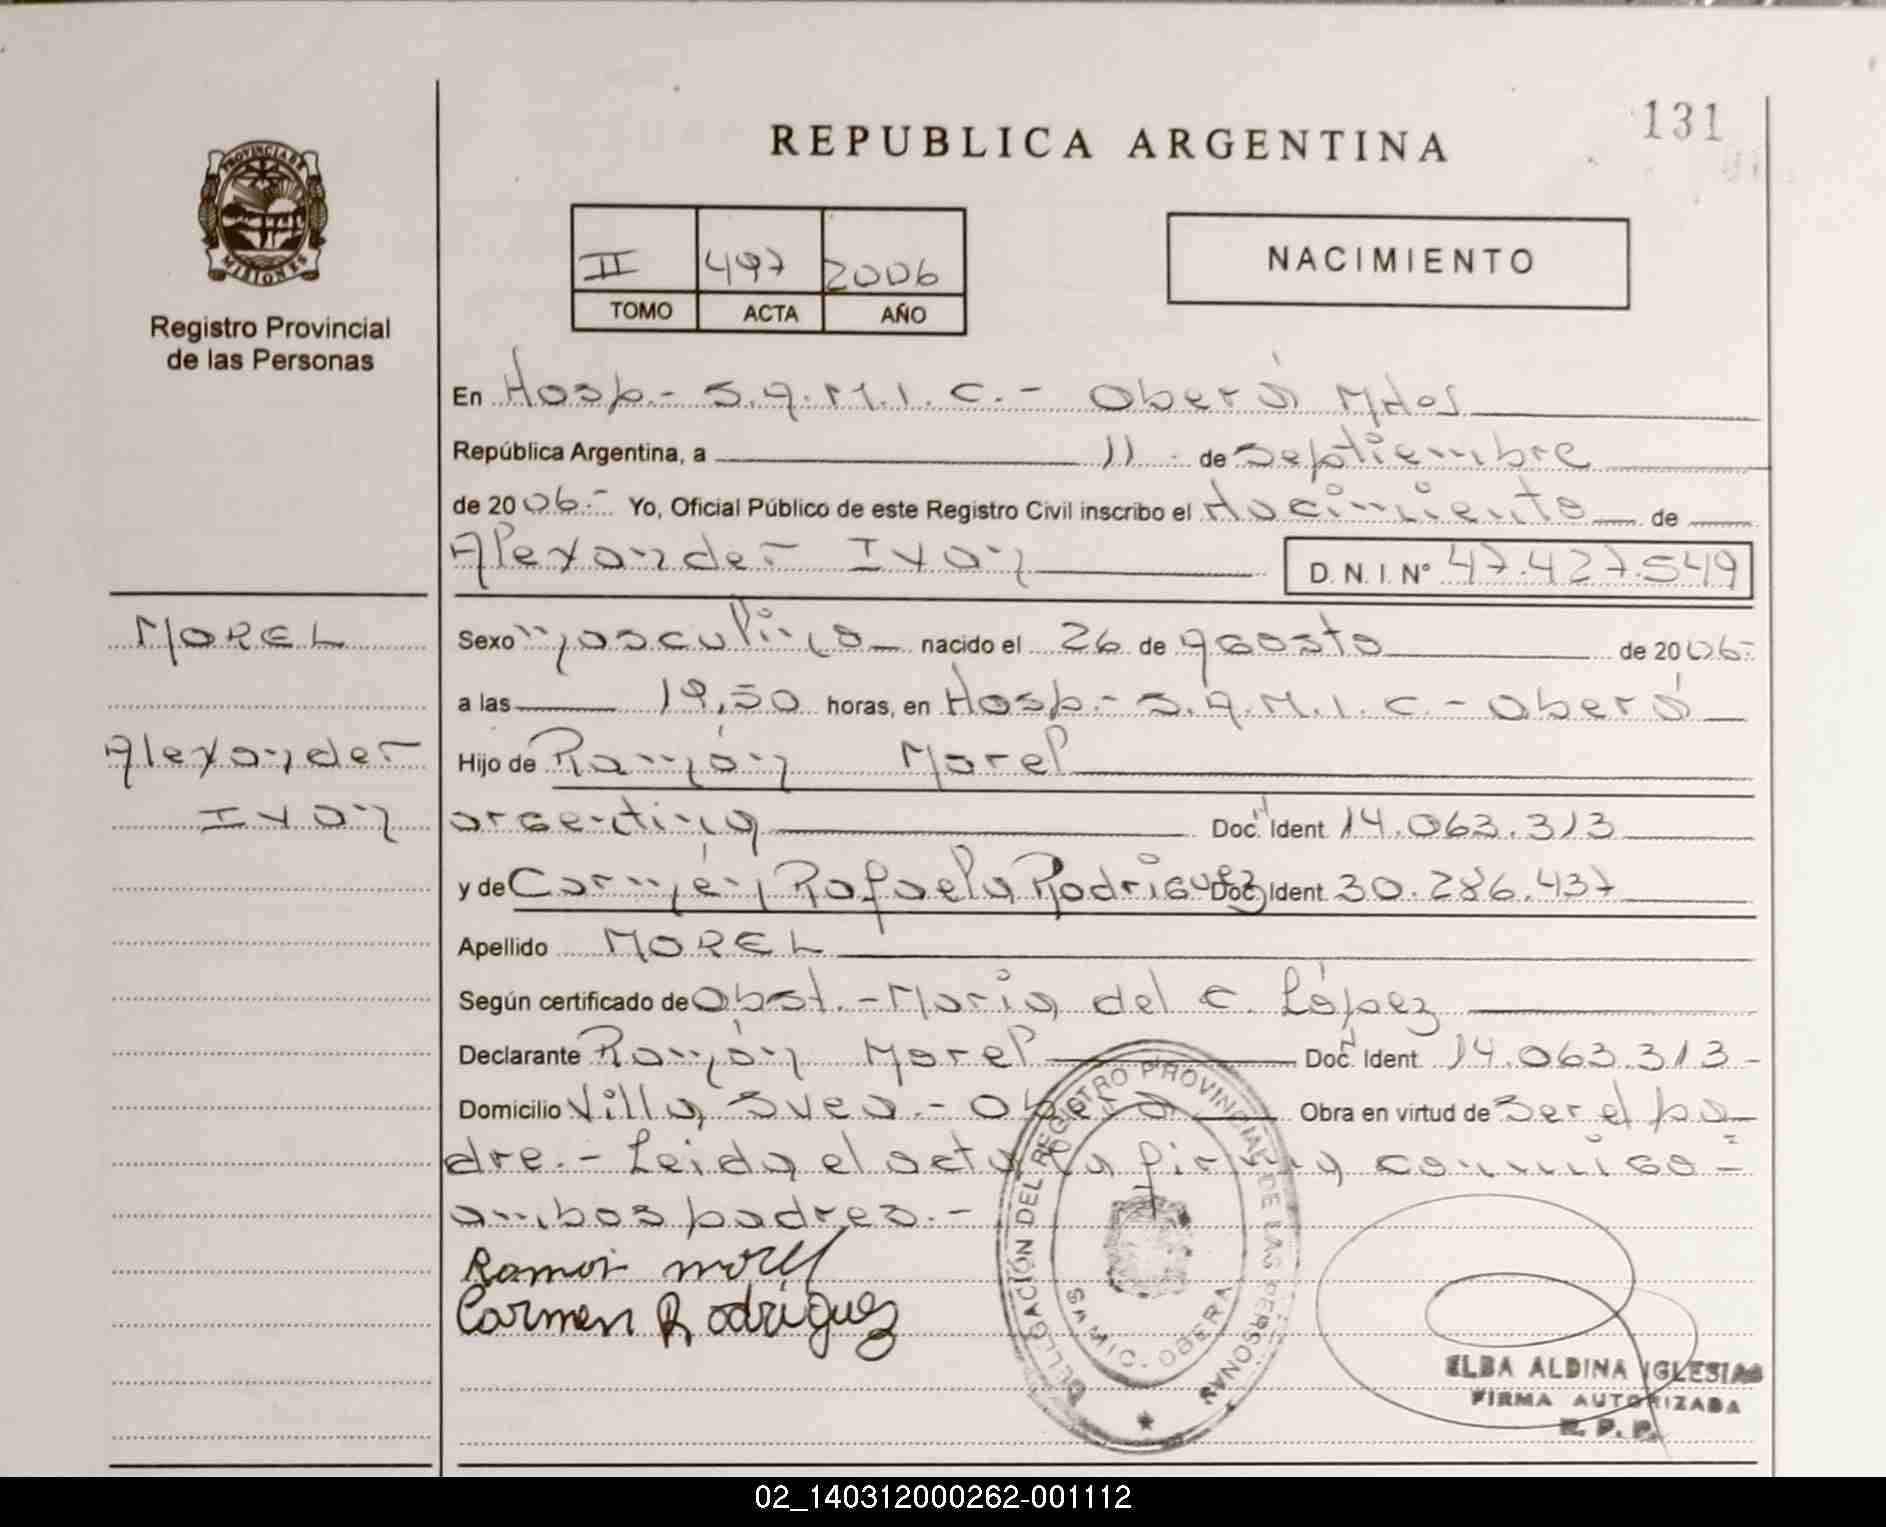 131
REPUBLICA ARGENTINA
PROVINCIA DE
MISIONES
Registro Provincial
de las Personas
II 497 2006
TOMO ACTA AÑO
NACIMIENTO
En Hosp.- S.A.M.I.C.- Oberá Mnes
República Argentina, a 11 de Septiembre
de 2006.- Yo, Oficial Público de este Registro Civil inscribo el Nacimiento de
Alexander Ivan D. N. I. N° 47.427.549
MOREL
Sexo masculino nacido el 26 de agosto de 2006-
a las 19,50 horas, en Hosp.- S.A.M.I.C.- Oberá
Alexander
Ivan
Hijo de Ramón Morel
argentina Doc. Ident. 14.063.313
y de Carmen Rafaela Rodriguez Doc. Ident. 30.286.437
Apellido MOREL
Según certificado de Obst.- Maria del C. López
Declarante Ramón Morel Doc. Ident. 14.063.313-
Domicilio Villa Svea.- Oberá Obra en virtud de Ser el pa
dre.- Leida el acta la firma conmigo-
ambos padres.-
Ramon morel
Carmen Rodriguez
DELEGACIÓN DEL REGISTRO PROVINCIAL DE LAS PERSONAS
SAMIC. OBERA
ELBA ALDINA IGLESIAS
FIRMA AUTORIZADA
R. P. P.
02_140312000262-001112